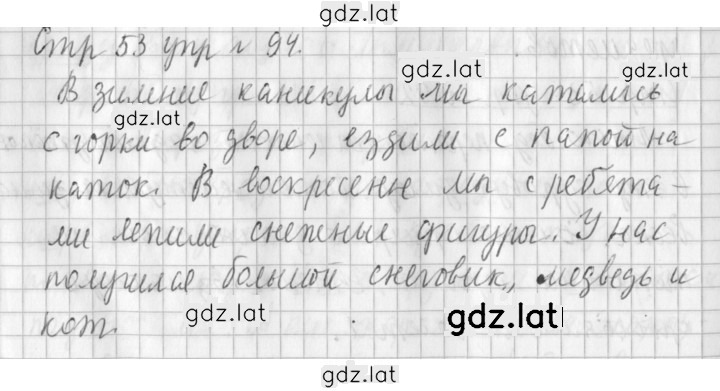 gdz.lat
Стр 53 упр № 94.
gdz.lat gdz.lat
В зимние каникулы мы катались
gdz.lat
с горки во дворе, ездили с папой на
каток. В воскресенье мы с ребята-
ми лепили снежные фигуры. У нас
получился большой снеговик, медведь и
gdz.lat gdz.lat
кот.
gdz.lat